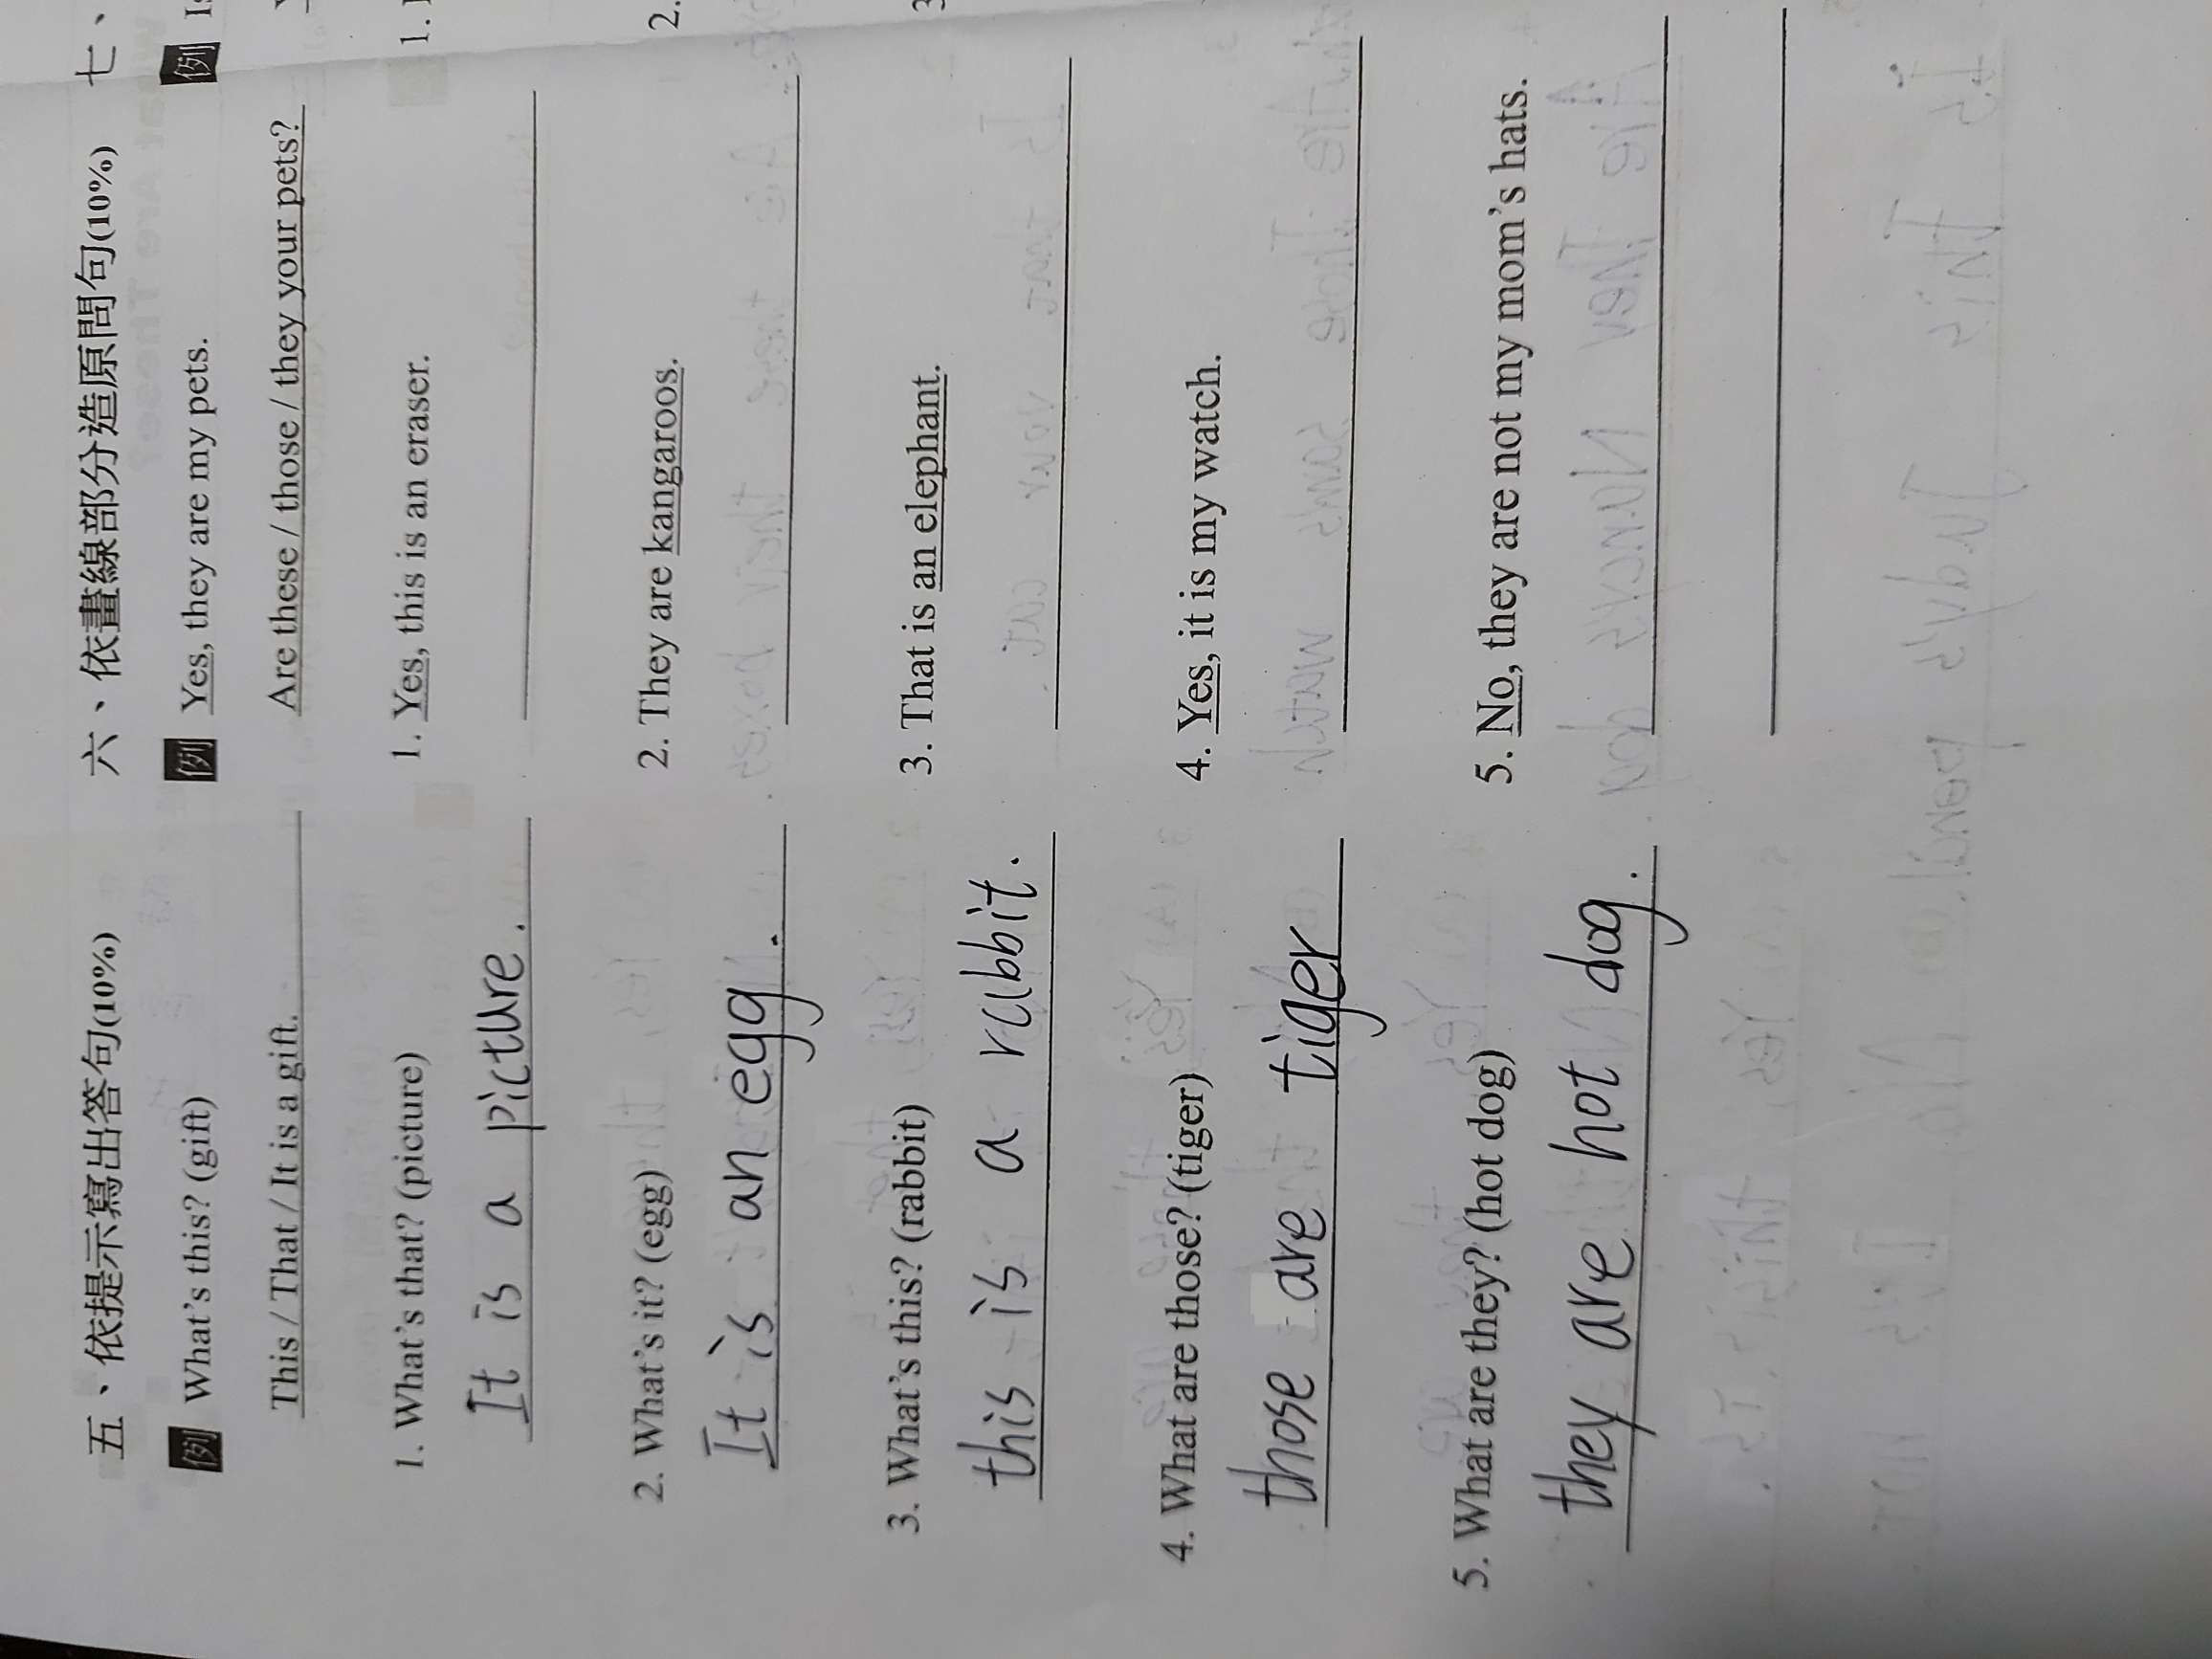 五、依提示寫出答句(10%)
例 What's this? (gift)
This / That / It is a gift.
1. What's that? (picture)
It is a picture.
2. What's it? (egg)
It is an egg.
3. What's this? (rabbit)
this is a rabbit.
4. What are those? (tiger)
those are tiger
5. What are they? (hot dog)
they are hot dog.
六、依畫線部分造原問句(10%)
例 Yes, they are my pets.
Are these / those / they your pets?
1. Yes, this is an eraser.
2. They are kangaroos.
3. That is an elephant.
4. Yes, it is my watch.
5. No, they are not my mom's hats.
七、
例
1.
2.